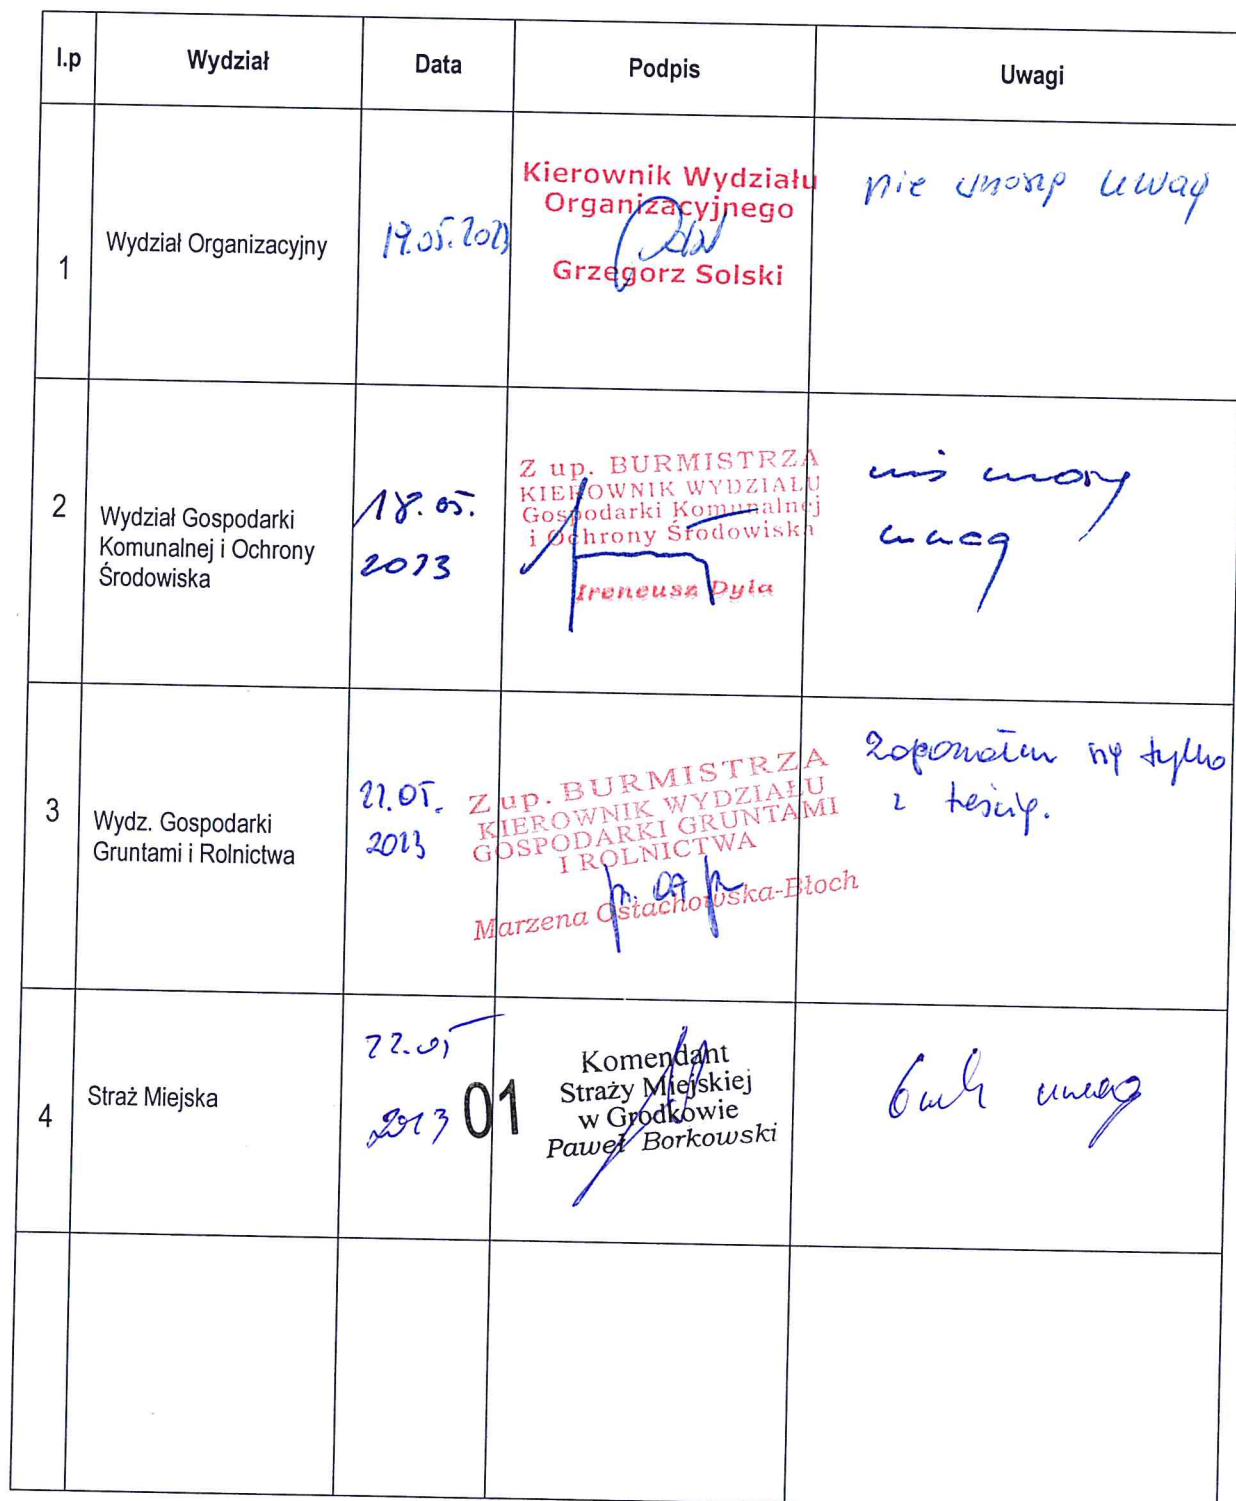 l.p Wydział Data Podpis Uwagi
1
Wydział Organizacyjny
19.05.2023
Kierownik Wydziału
Organizacyjnego
Grzegorz Solski
nie wnoszę uwag
2
Wydział Gospodarki
Komunalnej i Ochrony
Środowiska
18.05.
2023
Z up. BURMISTRZA
KIEROWNIK WYDZIAŁU
Gospodarki Komunalnej
i Ochrony Środowiska
Ireneusz Dyla
nie wnoszę
uwag
3
Wydz. Gospodarki
Gruntami i Rolnictwa
22.05.
2023
Z up. BURMISTRZA
KIEROWNIK WYDZIAŁU
GOSPODARKI GRUNTAMI
I ROLNICTWA
Marzena Ostachowska-Błoch
zapoznałem się tylko
z treścią.
4
Straż Miejska
22.05
2023
01
Komendant
Straży Miejskiej
w Grodkowie
Paweł Borkowski
brak uwag